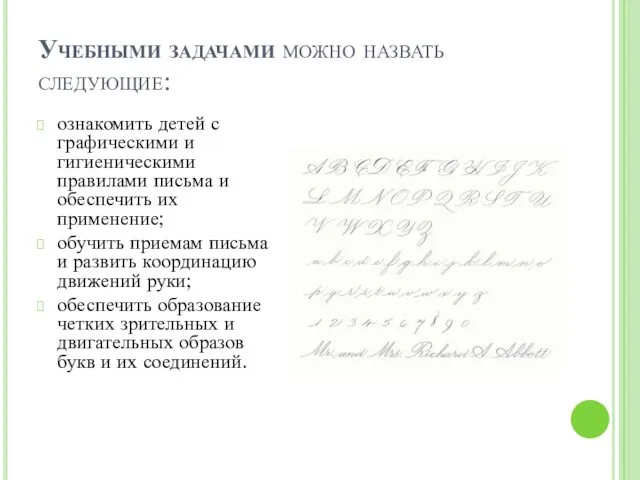 Учебными задачами можно назвать
следующие:
ознакомить детей с
графическими и
гигиеническими
правилами письма и
обеспечить их
применение;
обучить приемам письма
и развить координацию
движений руки;
обеспечить образование
четких зрительных и
двигательных образов
букв и их соединений.
A B C D E F G H I J K
L M N O P Q R S T U
V W X Y Z
a b c d e f g h i j k l m n o
p q r s t u v w x y z
1 2 3 4 5 6 7 8 9 0
Mr. and Mrs. Richard A Abbott